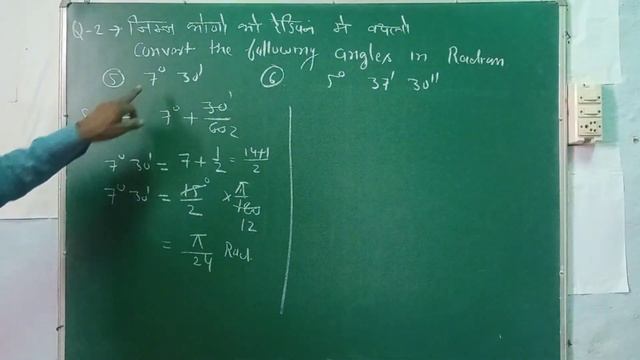 Q-2 → निम्न कोणों को रेडियन में बदलो
Convert the following angles in Radian
⑤ 7° 30'
⑥ 5° 37' 30"
= 7° + 30'/60 2
7° 30' = 7 + 1/2 = 14+1/2
7° 30' = 15°/2 × π/180 12
= π/24 Rad.